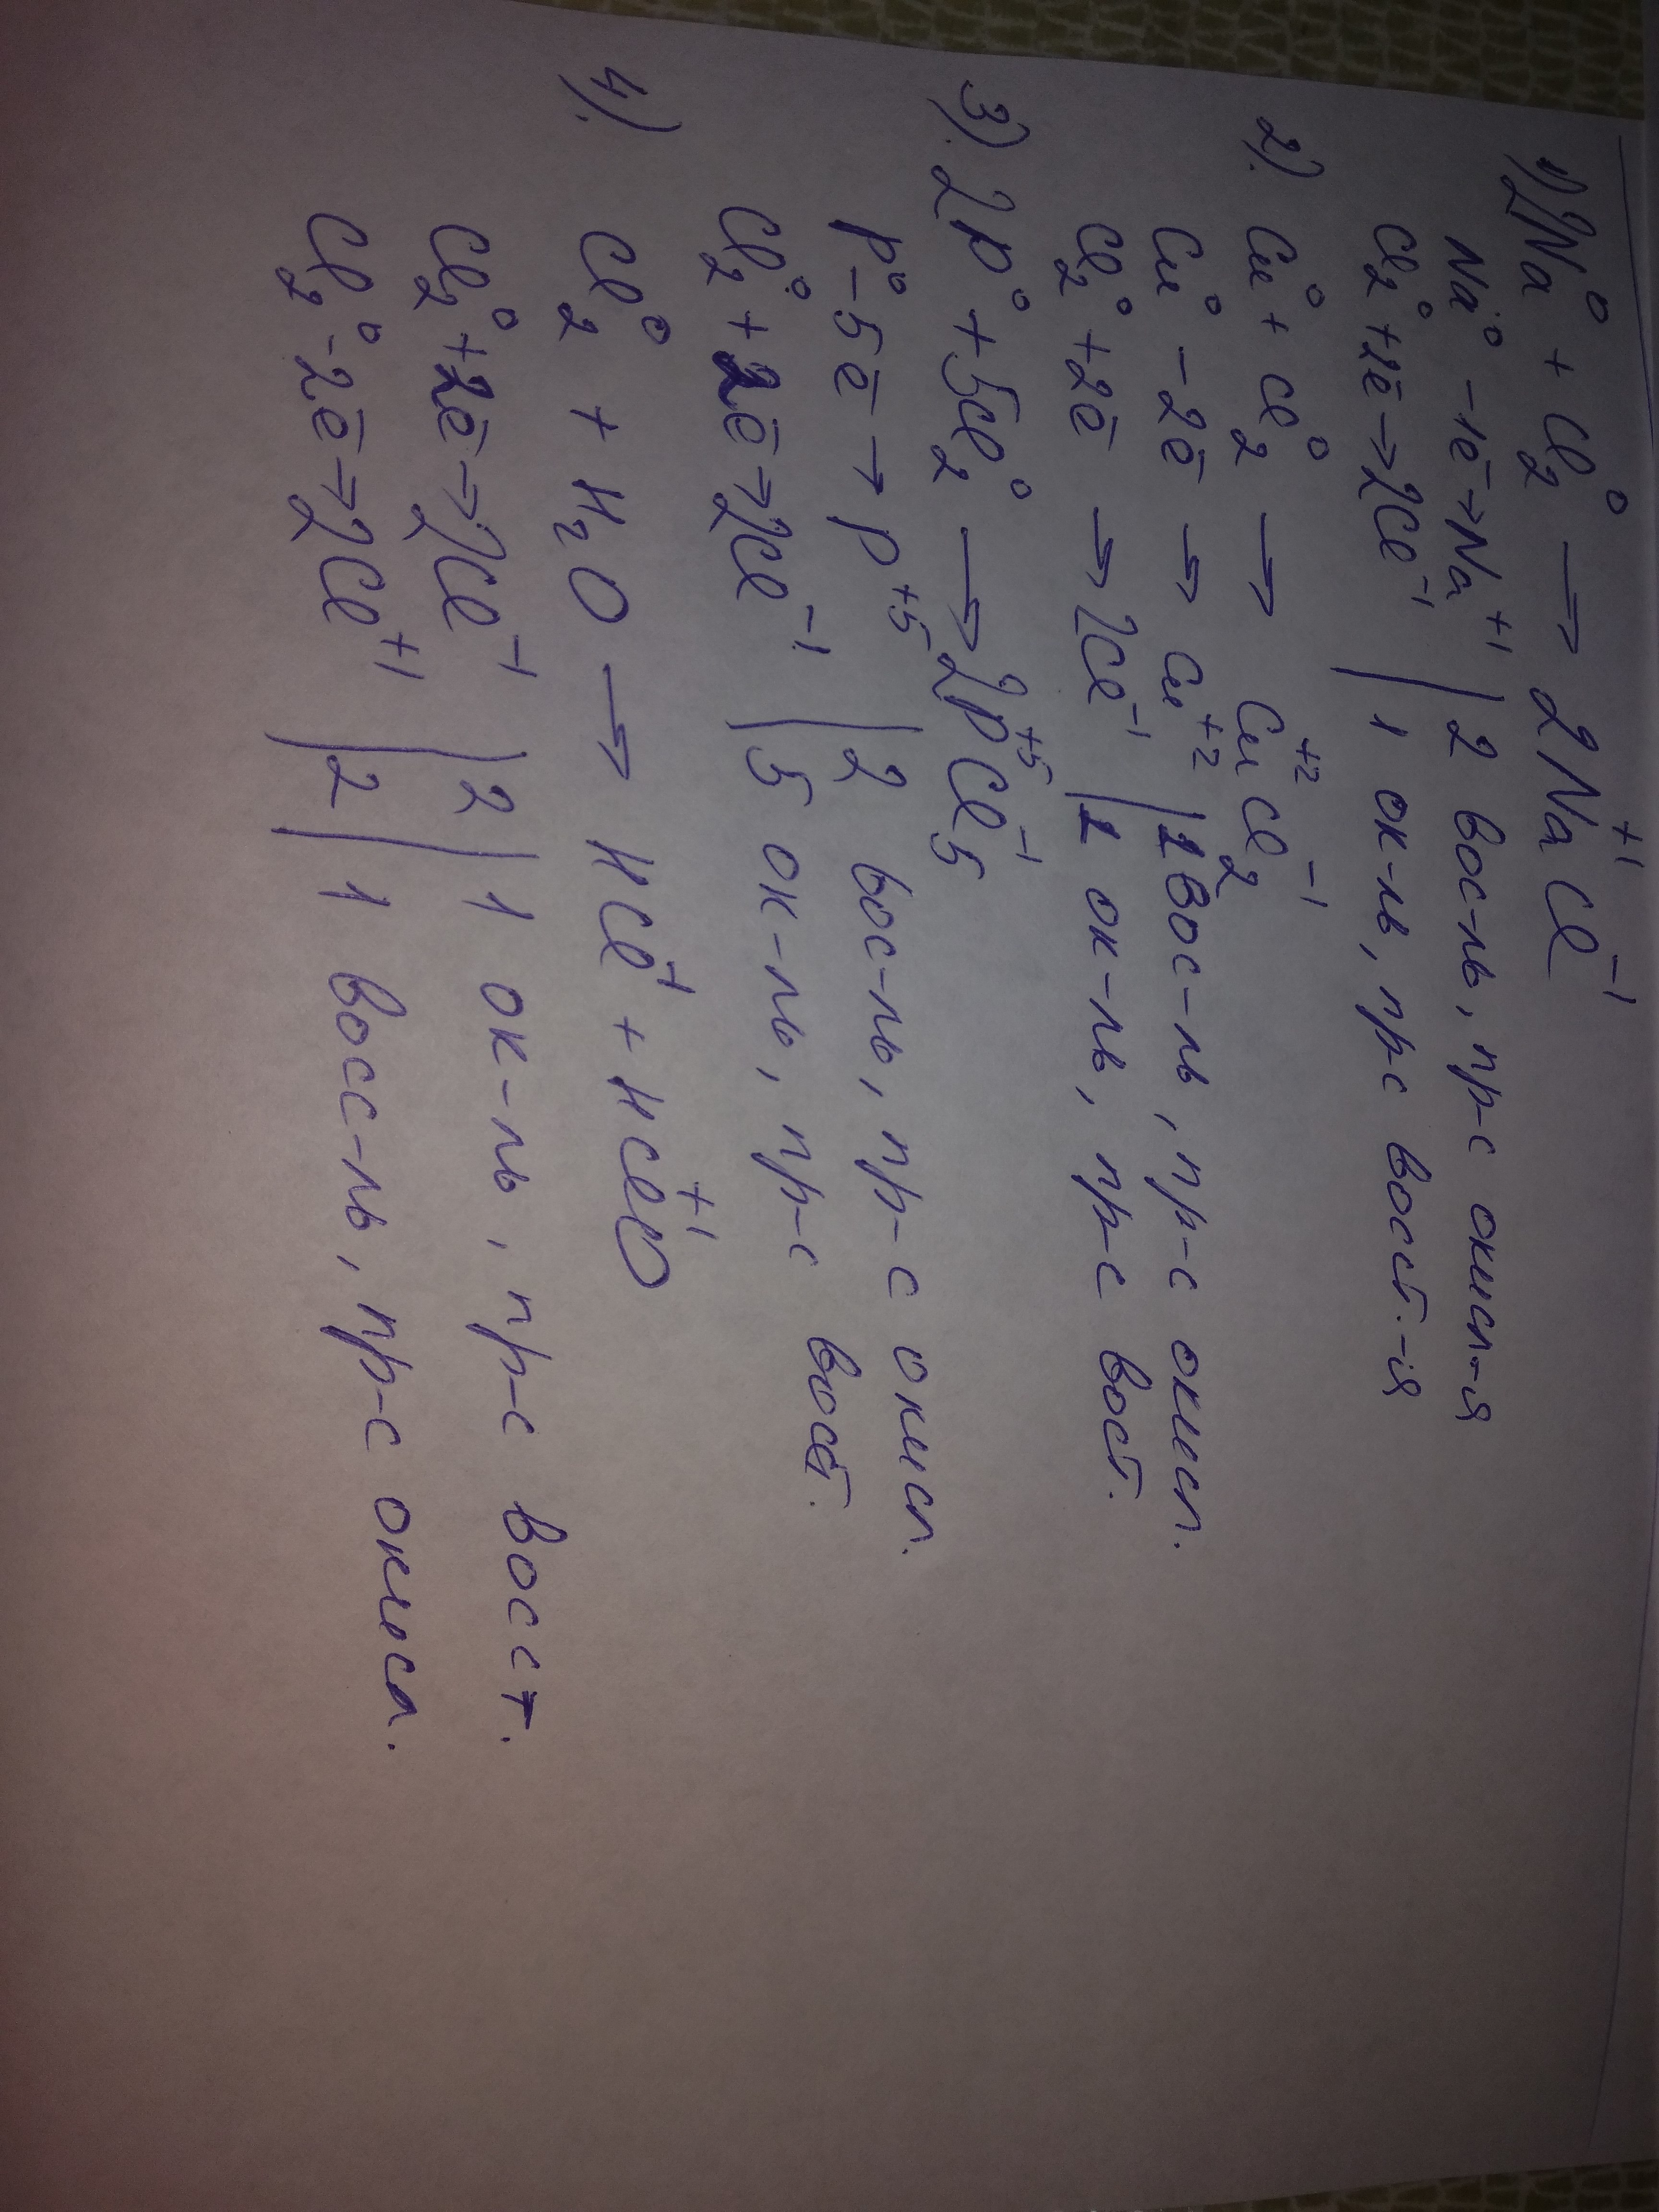 1) 2Na⁰ + Cl₂⁰ → 2Na⁺¹Cl⁻¹
Na⁰ - 1ē → Na⁺¹ | 2 вос-ль, пр-с окисл-я
Cl₂⁰ + 2ē → 2Cl⁻¹ | 1 ок-ль, пр-с восст.-я
2). Cu⁰ + Cl₂⁰ → Cu⁺²Cl₂⁻¹
Cu⁰ - 2ē → Cu⁺² | 1 вос-ль, пр-с окисл.
Cl₂⁰ + 2ē → 2Cl⁻¹ | 1 ок-ль, пр-с вост.
3). 2P⁰ + 5Cl₂⁰ → 2P⁺⁵Cl₅⁻¹
P⁰ - 5ē → P⁺⁵ | 2 вос-ль, пр-с окисл.
Cl₂⁰ + 2ē → 2Cl⁻¹ | 5 ок-ль, пр-с восст.
4). Cl₂⁰ + H₂O → HCl⁻¹ + HCl⁺¹O
Cl₂⁰ + 2ē → 2Cl⁻¹ | 2 | 1 ок-ль, пр-с вост.
Cl₂⁰ - 2ē → 2Cl⁺¹ | 2 | 1 восс-ль, пр-с окисл.